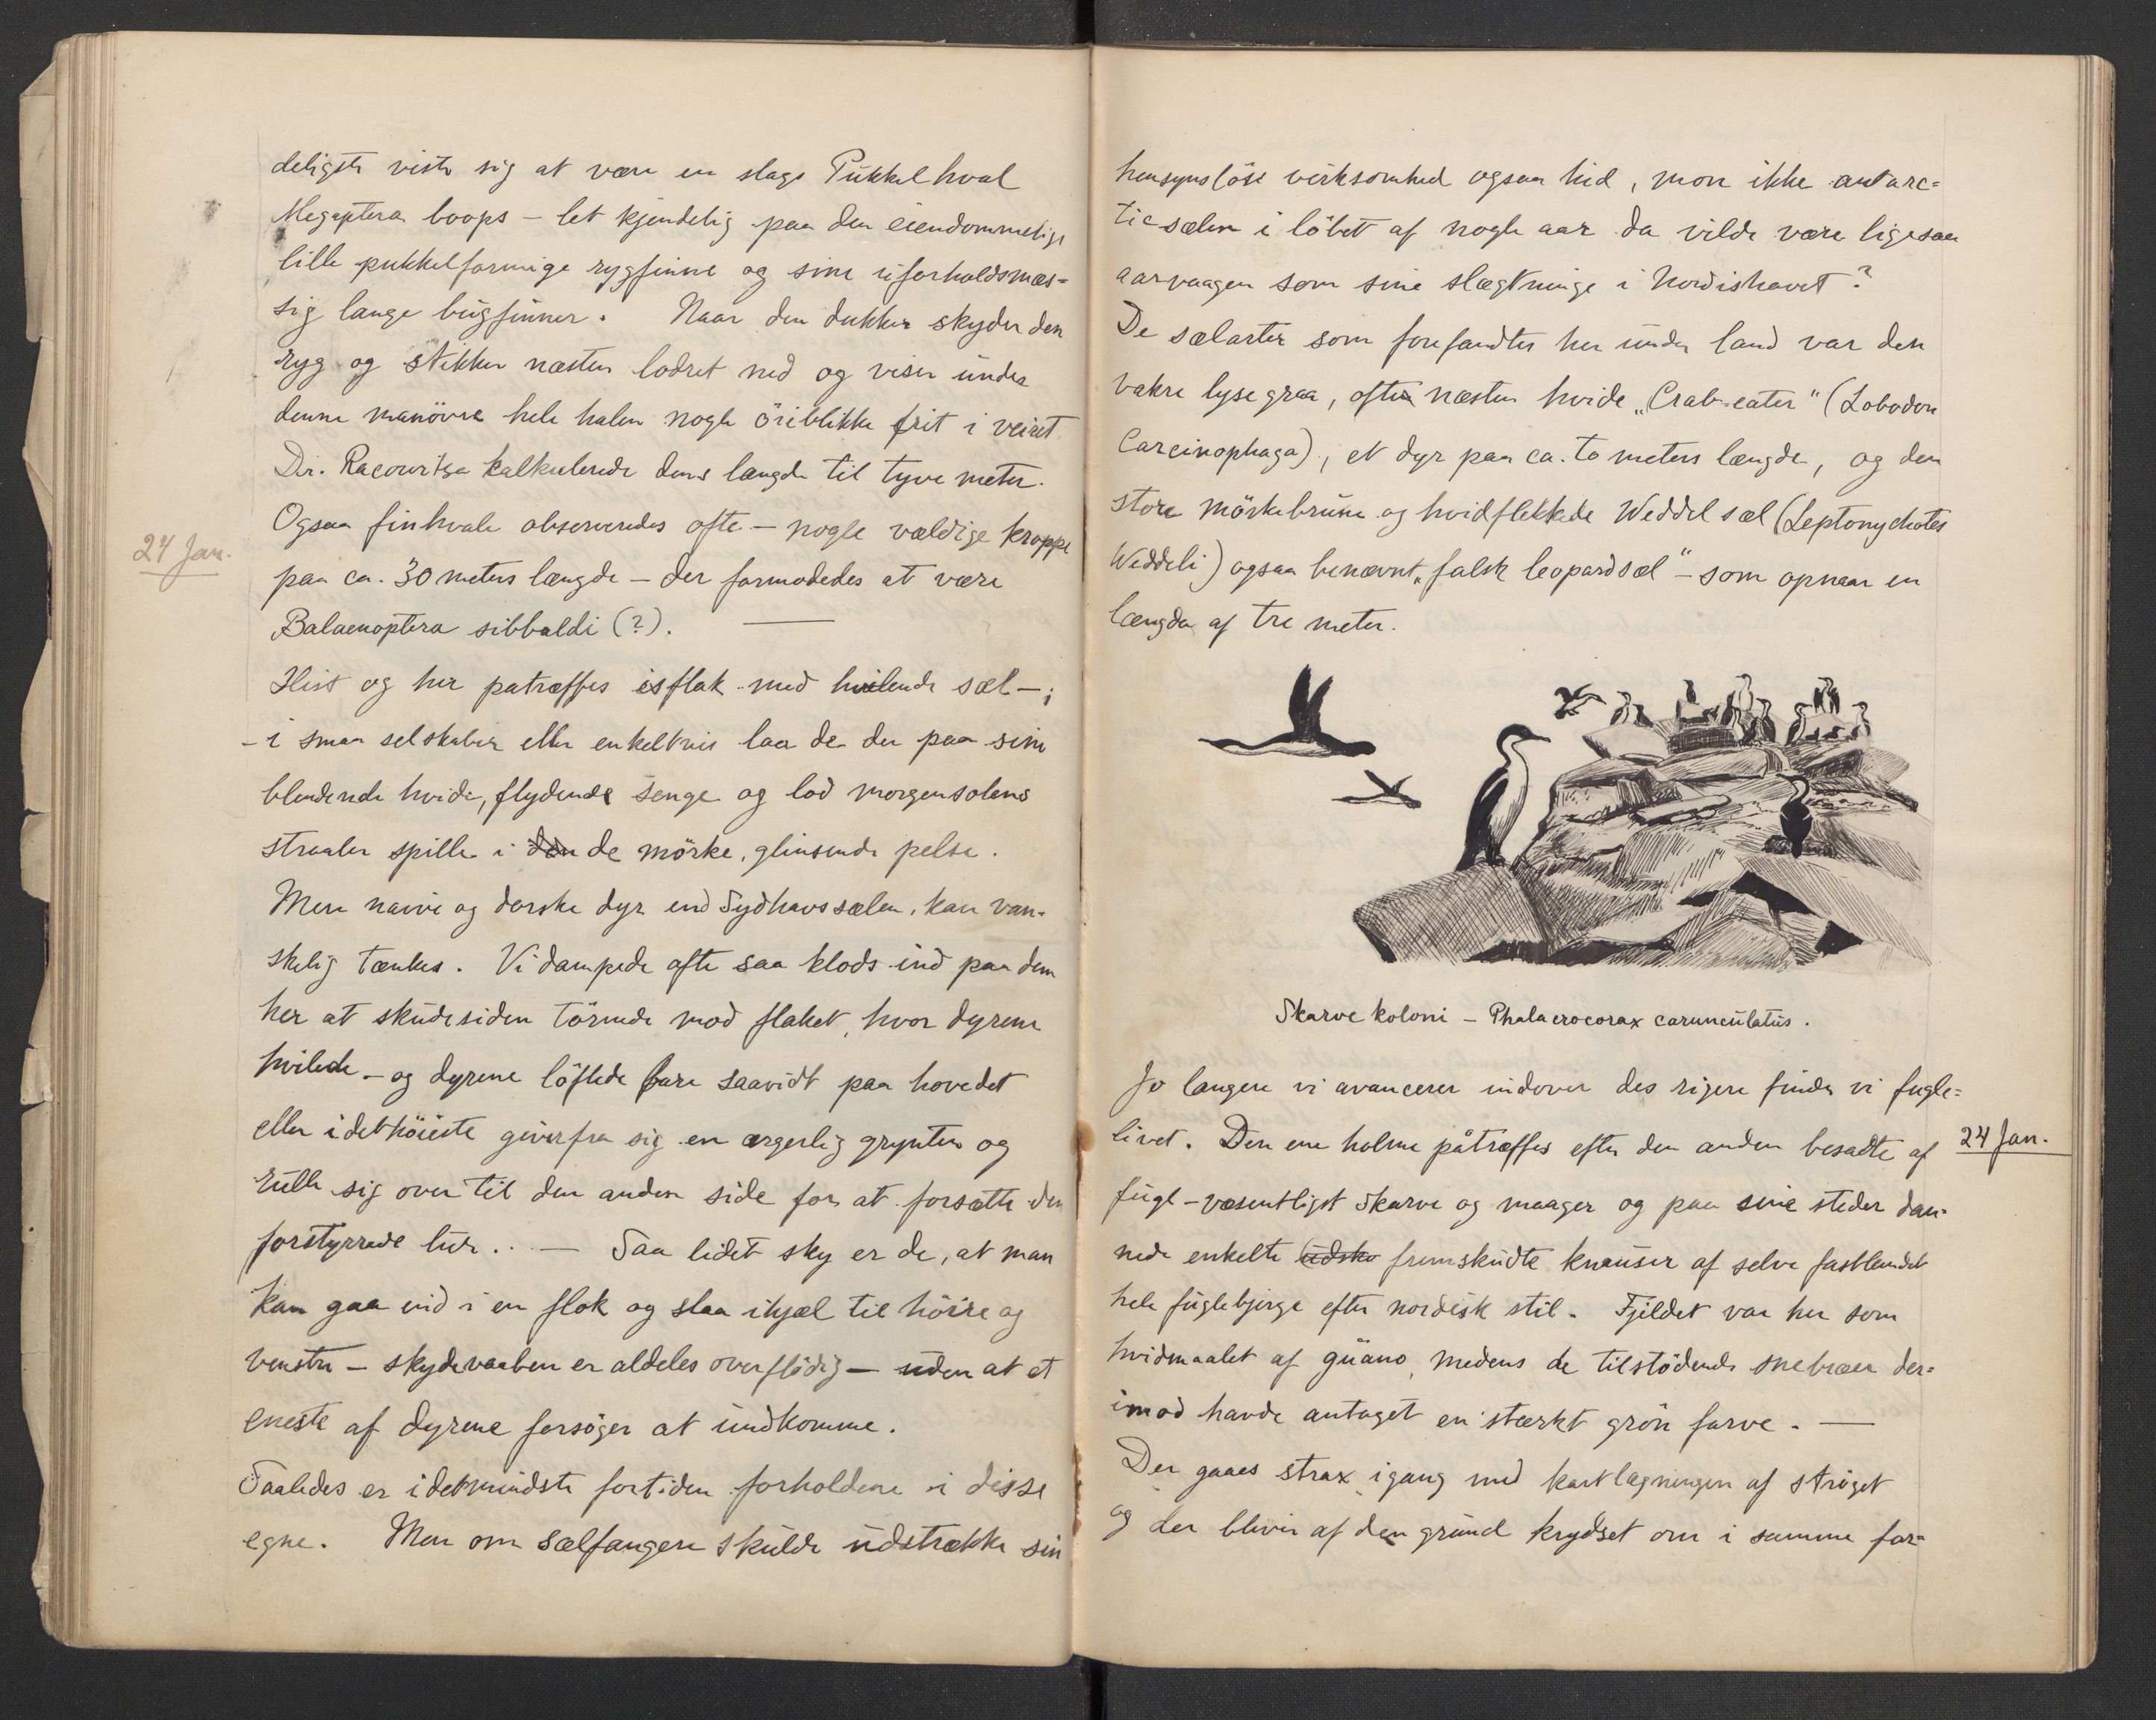 deligste viste sig at være en slags Pukkelhval
Megaptera boops – let kjendelig paa den eiendommelige
lille pukkelformige rygfinne og sine uforholdsmæs=
sig lange bugfinner. Naar den dukker skyder den
ryg og stikker næsten lodret ned og viser under
denne manövre hele halen nogle öieblikke frit i veiret.
Dr. Racowitsa kalkulerede dens længde til tyve meter.
Ogsaa finhvale observeredes ofte – nogle vældige kroppe
24 Jan.
paa ca. 30 meters længde – der formodedes at være
Balaenoptera sibbaldi (?). —
Hist og her patræffes isflak med hvilende sæl –;
– i smaa selskaber eller enkeltvis laa de der paa sine
blendende hvide, flydende senge og lod morgensolens
straaler spille i den de mörke, glinsende pelse.
Mere naive og dorske dyr end Sydhavssælen, kan van-
skelig tænkes. Vi dampede ofte saa klods ind paa dem
her at skudesiden törnede mod flaket, hvor dyrene
hvilede – og dyrene löftede bare saavidt paa hovedet
eller idethöieste giver fra sig en ærgerlig grynten og
rulle sig over til den anden side for at forsætte den
forstyrrede lur.. — Saa lidet sky er de, at man
kan gaa ind i en flok og slaa ihjæl til höire og
venstre – skydevaaben er aldeles overflödig – uden at et
eneste af dyrene forsöger at undkomme.
Saaledes er idetmindste fortiden forholdene i disse
egne. Men om sælfangere skulde udstrække sin
hensynslöse virksomhed ogsaa hid, mon ikke antarc=
tic sælen i löbet af nogle aar da vilde være ligesaa
aarvaagen som sine slægtninge i Nordishavet?
De sælarter som forefandtes her under land var den
vakre lyse graa, ofte næsten hvide „Crab-eater" (Lobodon
Carcinophaga), et dyr paa ca. to meters længde, og den
store mörkebrune og hvidflekkede Weddel sæl (Leptonychotes
Weddeli) ogsaa benævnt „falsk leopardsæl" – som opnaar en
længde af tre meter.
Skarve koloni – Phalacrocorax carunculatus.
Jo længere vi avancerer indover des rigere finder vi fugle=
livet. Den ene holme påtræffes efter den anden besadte af
24 Jan.
fugl – væsentligst skarve og maager og paa sine steder dan-
nede enkelte udsko fremskudte knauser af selve fastlandet
hele fuglebjerge efter nordisk stil. Fjeldet var her som
hvidmaalet af guano, medens de tilstödende snebræer der=
imod havde antaget en stærkt grön farve. —
Der gaaes strax igang med kartlægningen af ströget
og der bliver af den grund krydset om i samme far=